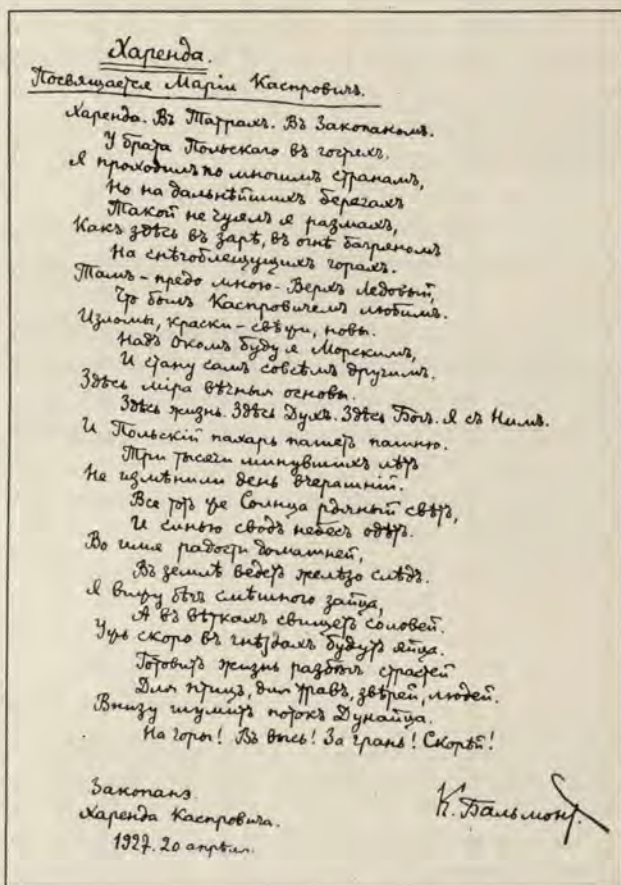 Харенда.
Посвящается Маріи Каспровичъ.
Харенда. Въ Татрахъ. Въ Закопаномъ.
У брата Польскаго въ гостяхъ.
Я проходилъ по многимъ странамъ,
Но на дальнѣйшихъ берегахъ
Такой не чуялъ я размахъ,
Какъ здѣсь въ зарѣ, въ огнѣ багряномъ
На снѣгоблещущихъ горахъ.
Тамъ - предо мною - Верхъ Ледовый,
Что былъ Каспровичемъ любимъ.
Изломы, краски - свѣжи, новы.
Надъ Окомъ буду я Морскимъ,
И стану самъ совсѣмъ другимъ.
Здѣсь міра вѣчныя основы.
Здѣсь жизнь. Здѣсь Духъ. Здѣсь Богъ. Я съ Нимъ.
И Польскій пахарь пашетъ пашню.
Три тысячи минувшихъ лѣтъ
Не измѣнили день вчерашній.
Все тотъ же Солнца рдяный свѣтъ,
И синью сводъ небесъ одѣтъ.
Во имя радости домашней,
Въ землѣ ведетъ желѣзо слѣдъ.
Я вижу бѣгъ смѣшного зайца,
А въ вѣткахъ свищетъ соловей.
Ужь скоро въ гнѣздахъ будутъ яйца.
Готовитъ жизнь разбѣгъ страстей
Для птицъ, для травъ, звѣрей, людей.
Внизу шумитъ потокъ Дунайца.
На горы! Въ высь! За грань! Скорѣй!
Закопанэ.
Харенда Каспровича.
1927. 20 апрѣля.
К. Бальмонт.